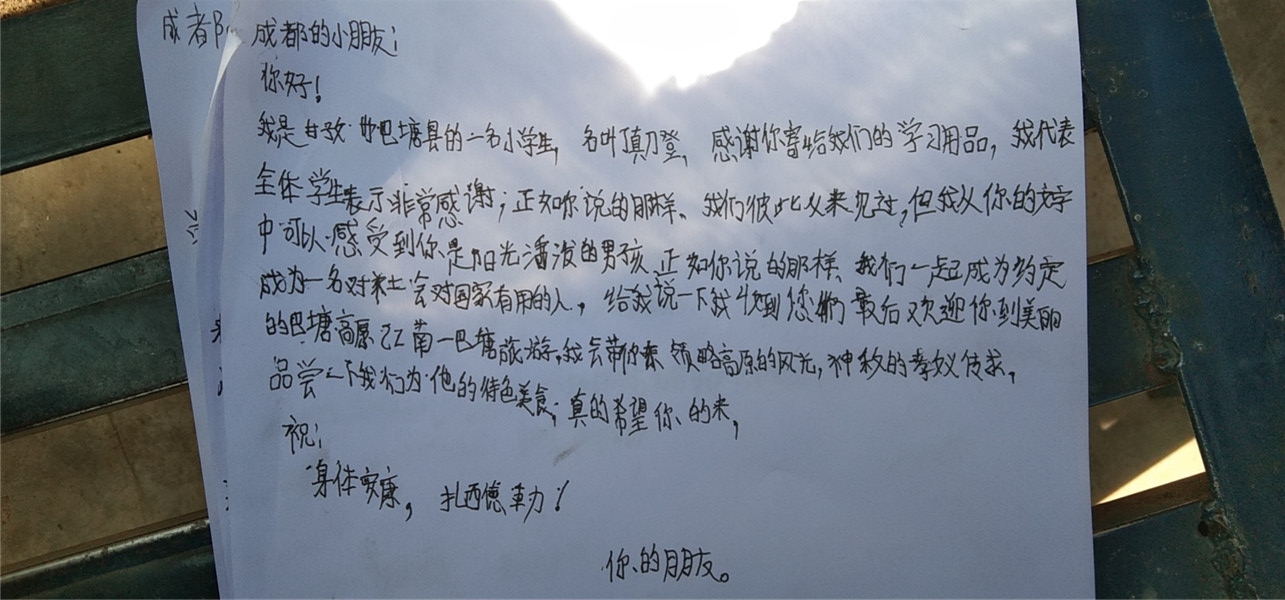 成都的小朋友:
你好!
我是甘孜州巴塘县的一名小学生,名叫真登,感谢你寄给我们的学习用品,我代表
全体学生表示非常感谢;正如你说的那样、我们彼此从未见过,但我从你的文字
中可以感受到你是阳光活泼的男孩 正如你说的那样、我们一起成为约定
成为一名对社会对国家有用的人,给我说一下我收到您们 最后欢迎你到美丽
的巴塘高原江南一巴塘旅游,我会带你来领略高原的风光,神秘的
品尝一下我们为他的特色美食;真的希望你的来,
祝:
身体安康,扎西德勒!
你的朋友。
成都